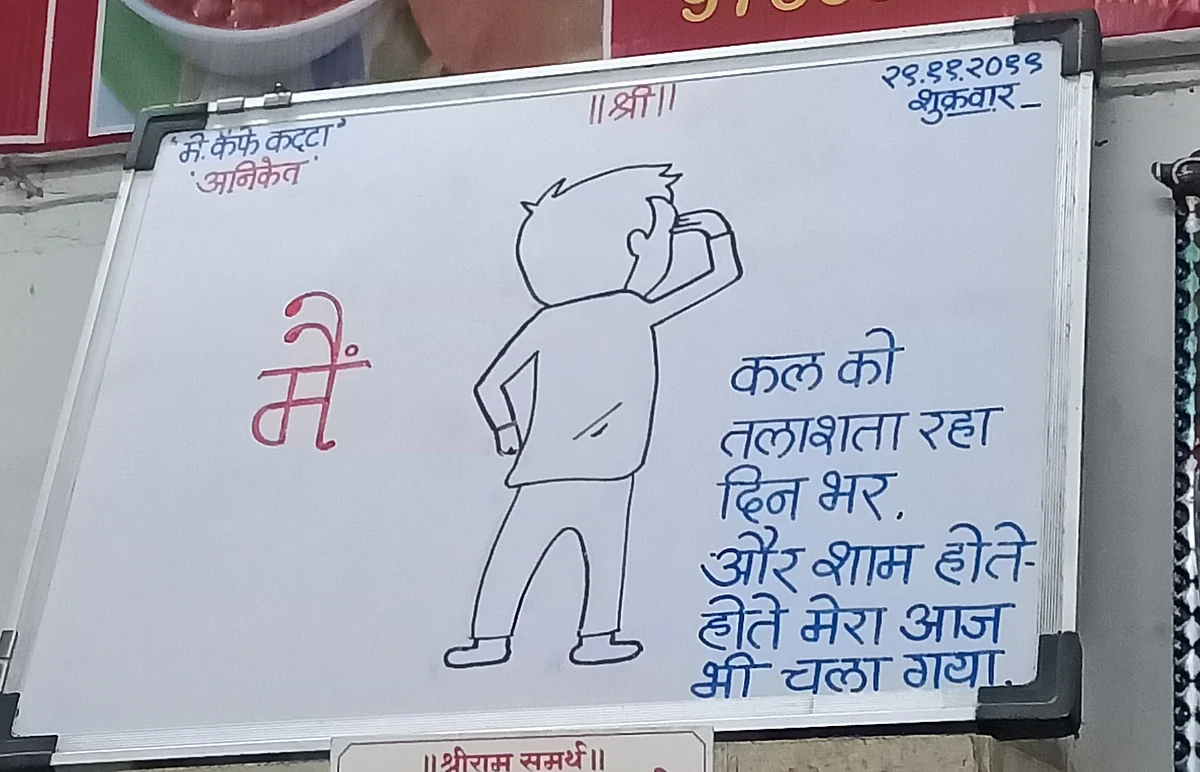 ॥श्री॥
२९.११.२०१९
शुक्रवार_
"मे. कॅफे कट्टा"
'अनिकेत'
मैं
कल को
तलाशता रहा
दिन भर.
और शाम होते-
होते मेरा आज
भी चला गया.
॥श्रीराम समर्थ॥